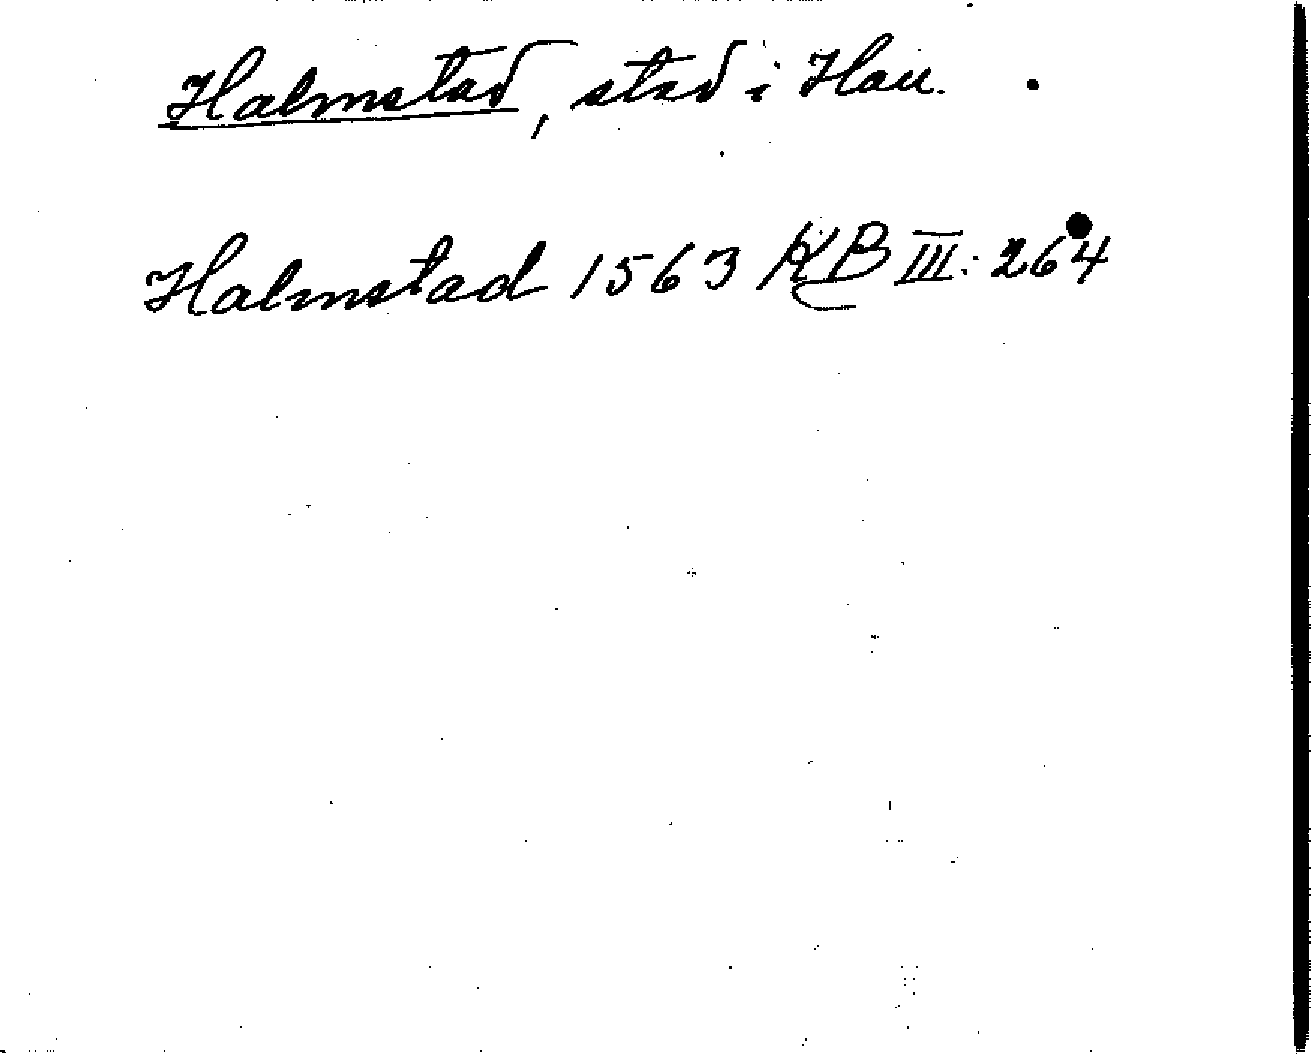 Halmstad, stad i Hall.
Halmstad 1563 KB III: 264